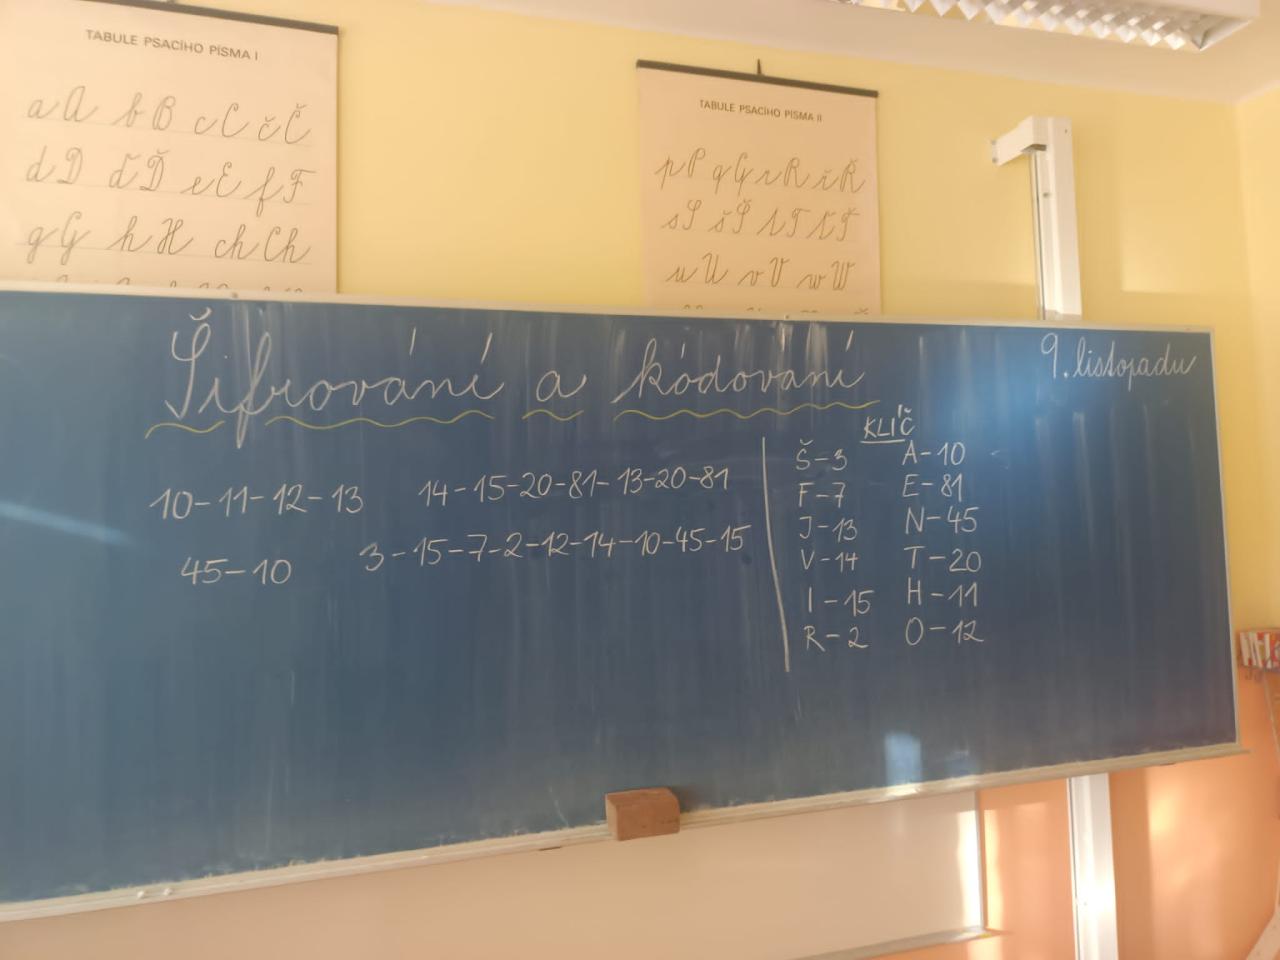 TABULE PSACÍHO PÍSMA I
a A b B c C č Č
d D ď Ď e E f F
g G h H ch Ch
TABULE PSACÍHO PÍSMA II
p P q Q r R ř Ř
s S š Š t T ť Ť
u U v V w W
Šifrování a kódování
9. listopadu
10-11-12-13 14-15-20-81-13-20-81
45-10 3-15-7-2-12-14-10-45-15
KLÍČ
Š-3 A-10
F-7 E-81
J-13 N-45
V-14 T-20
I-15 H-11
R-2 O-12